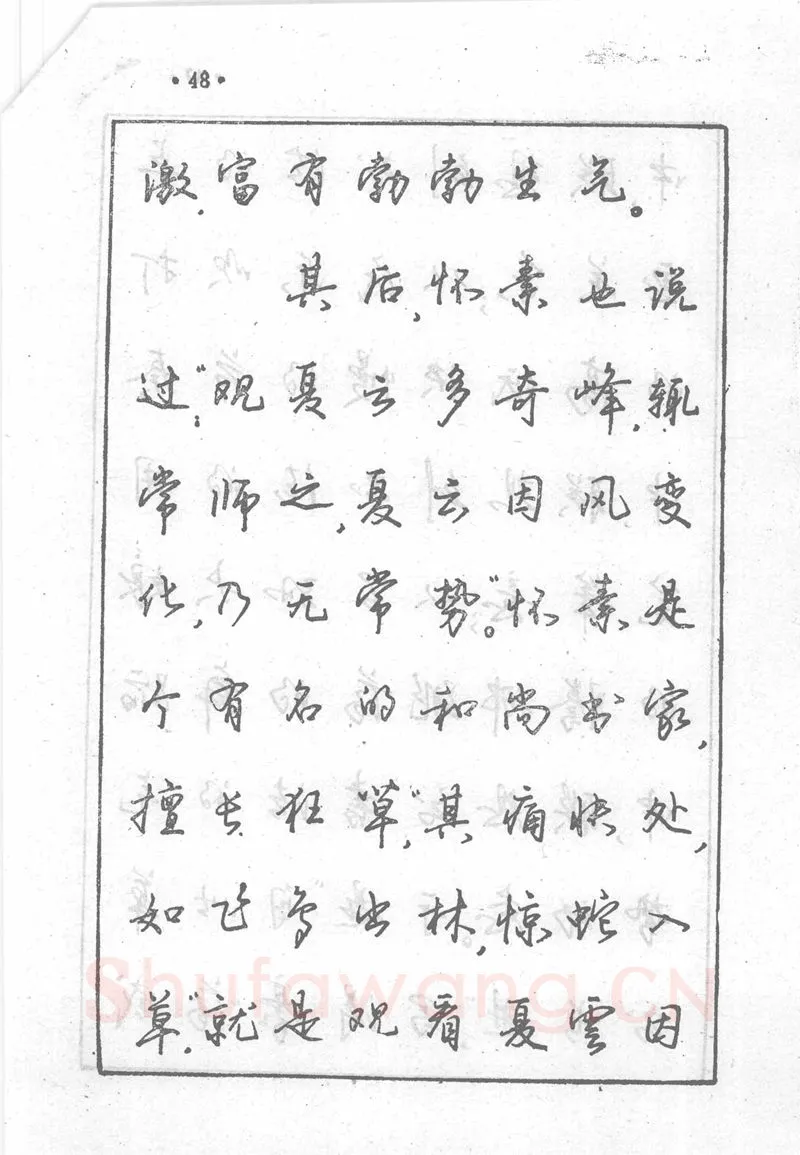 ·48·
激,富有勃勃生气。
其后,怀素也说
过:“观夏云多奇峰,辄
常师之,夏云因风变
化,乃无常势”。怀素是
个有名的和尚书家,
擅长狂草,“其痛快处,
如飞鸟出林,惊蛇入
草”,就是观看夏雲因
Shufawang.CN